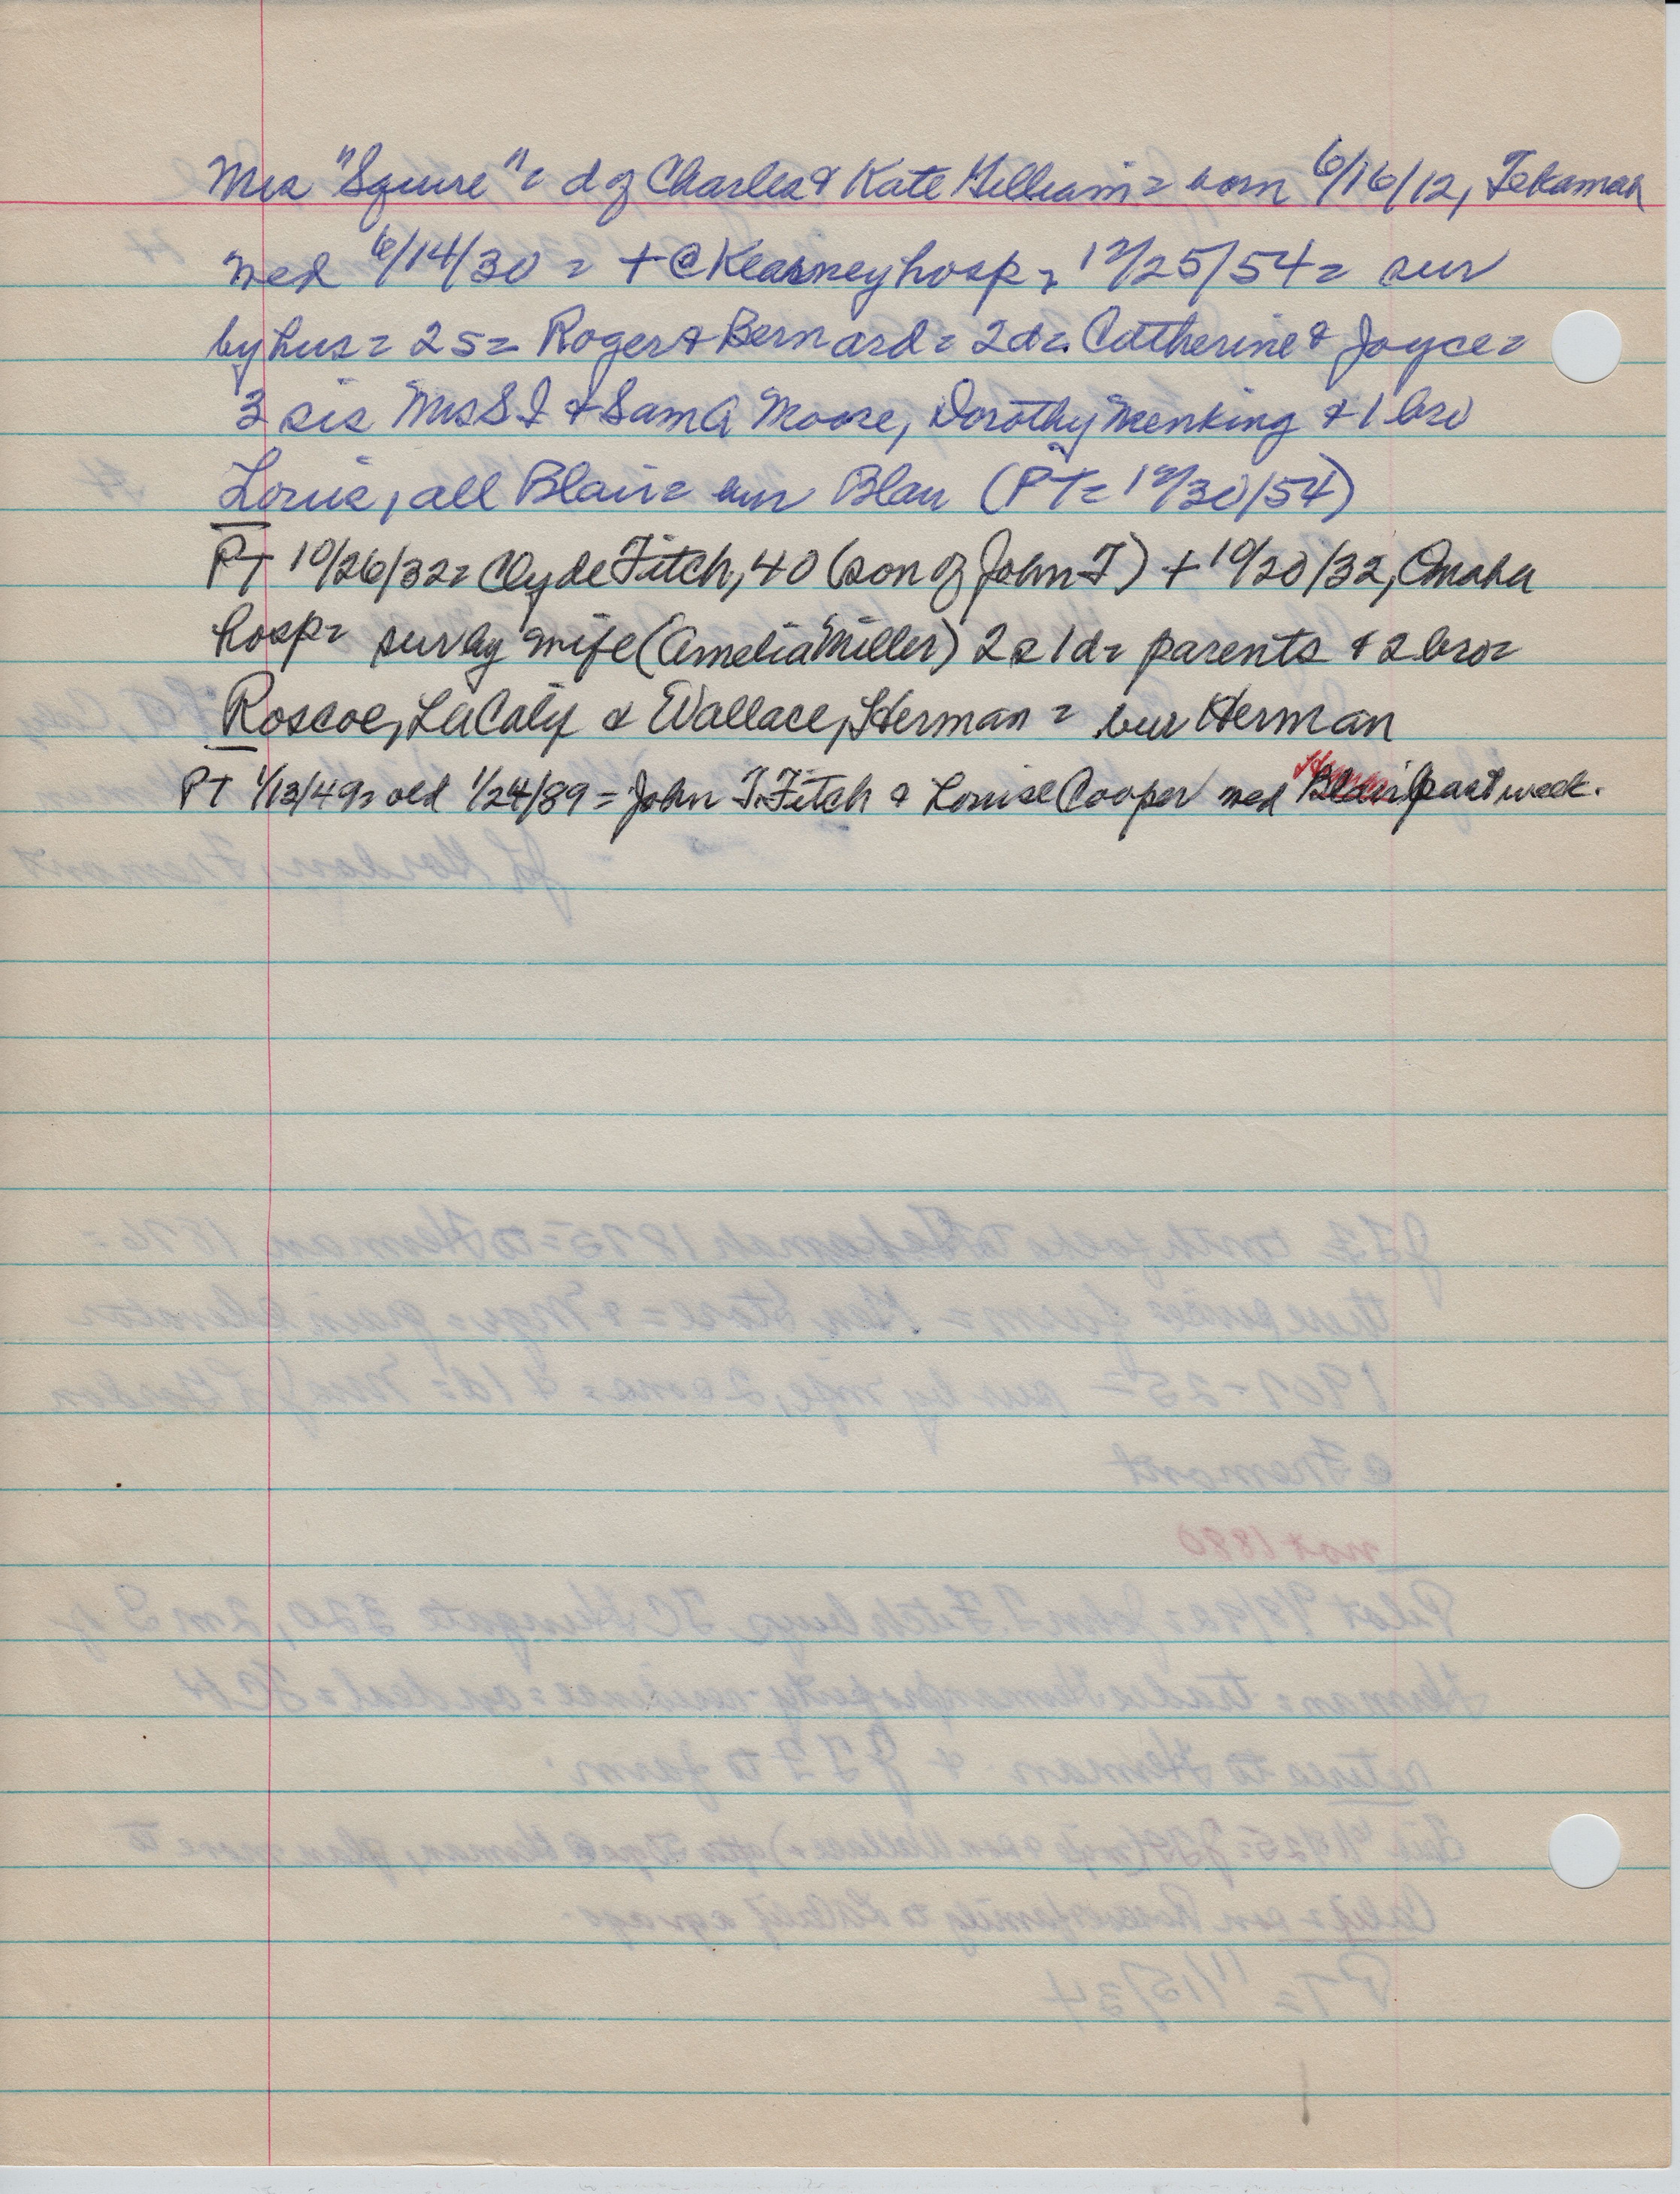 Mrs "Squire" = d of Charles & Kate Gilliam = born 6/16/12, Tekamah
wed 6/14/30 = + @ Kearney hosp = 12/25/54 = sur
by hus = 2 s = Roger & Bernard = 2d = Catherine & Joyce =
3 sis Mrs S I & Sam A Moore, Dorothy Menking & 1 bro
Louis, all Blair = bur Blair (PT = 12/30/54)
PT 10/26/32 = Clyde Fitch, 40 (son of John F) + 10/20/32, Omaha
hosp = sur by wife (Amelia Miller) 2 s 1 d = parents & 2 bro =
Roscoe, LA Calif & Wallace, Herman = bur Herman
PT 1/13/49 = old 1/24/89 = John F. Fitch & Louise Cooper wed Blair past week.